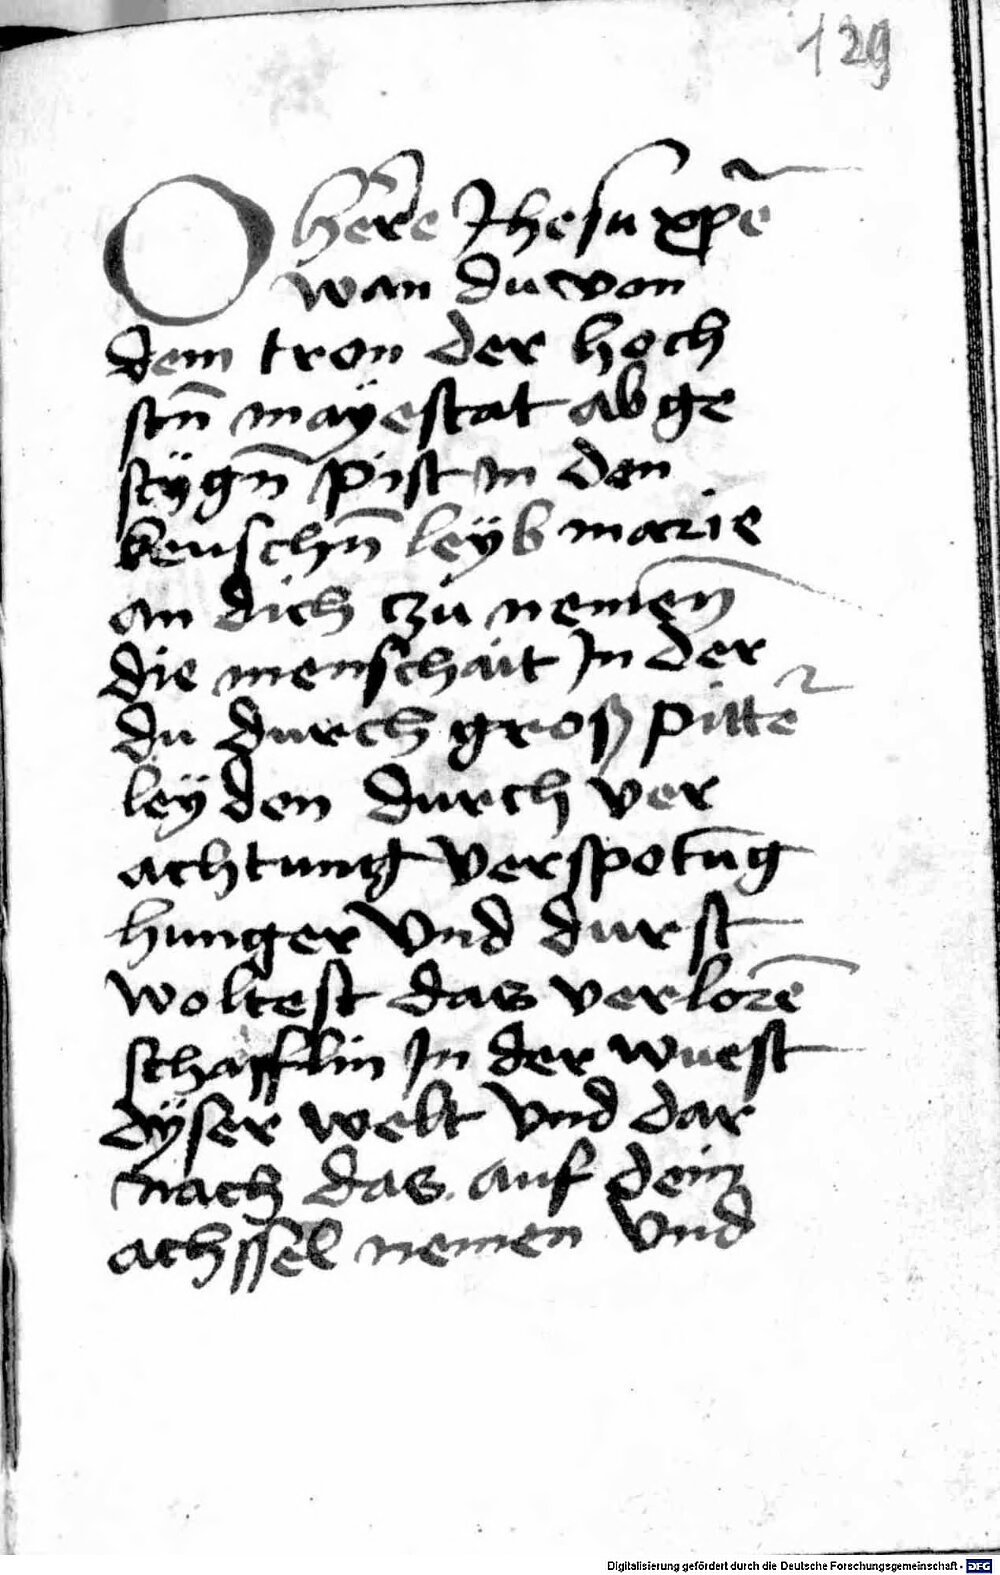 129
O herre Jhesu xpē
wan du von
dem tron der hoch
stn̄ maÿestat ab ge
stÿgn̄ pist in den
keuschn̄ leÿb marie
an dich czu nemen̄
die menschait In der
du durch groß pitte᷑
leÿden durch ver
achtung verspotūg
hunger vnd durst
woltest das verlorē
schafflin In der wuest
dÿser welt vnd dar
nach das auf dein
achssel nemen vnd
Digitalisierung gefördert durch die Deutsche Forschungsgemeinschaft - DFG